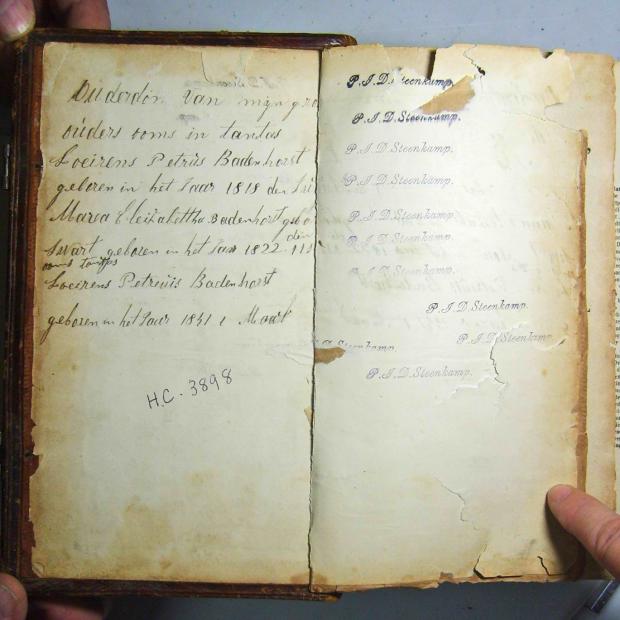 Ouderdom van mijn gro
ouders ooms in tantas
Loeirens Petrus Badenhorst
geboren in het Jaar 1818 den
Marea Elizabettha Badenhorst gebo
Swart geboren in het Jaar 1822 den 11
ooms tantjes
Loeirens Petreuis Badenhorst
geboren in het Jaar 1841 1 Maart
H.C. 3898
P.J.D. Steenkamp.
P.J.D. Steenkamp.
P.J.D. Steenkamp.
P.J.D. Steenkamp.
P.J.D. Steenkamp.
P.J.D. Steenkamp.
P.J.D. Steenkamp.
P.J.D. Steenkamp.
P.J.D. Steenkamp.
D. Steenkamp.
P.J.D. Steenkamp.